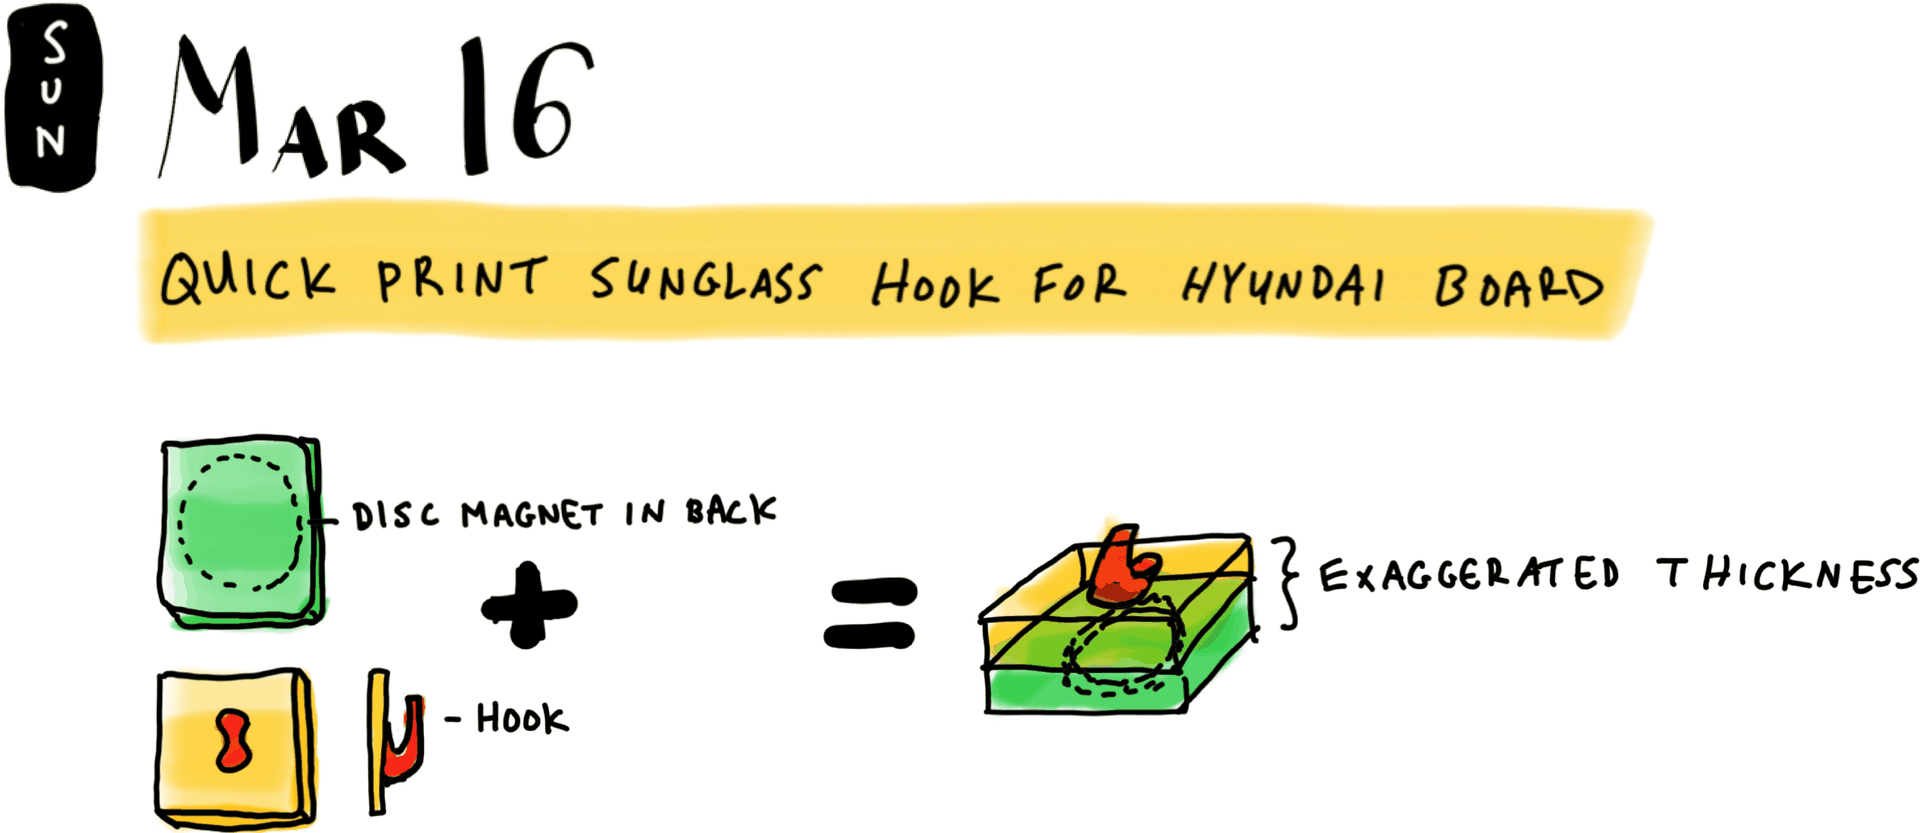 SUN
MAR 16
QUICK PRINT SUNGLASS HOOK FOR HYUNDAI BOARD
- DISC MAGNET IN BACK
} EXAGGERATED THICKNESS
- HOOK